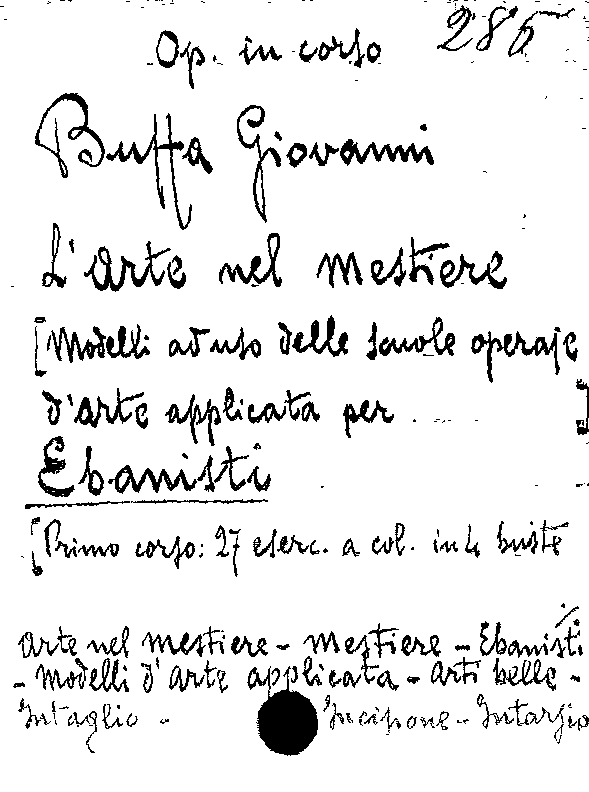 285
Op. in corso
Buffa Giovanni
L'Arte nel mestiere
[Modelli ad uso delle scuole operaje
d'arte applicata per ........ ]
Ebanisti
[Primo corso: 27 eserc. a col. in 4 buste
./.
Arte nel mestiere - mestiere - Ebanisti
- Modelli d'Arte applicata - Arti belle -
Intaglio - Incisione - Intarsio